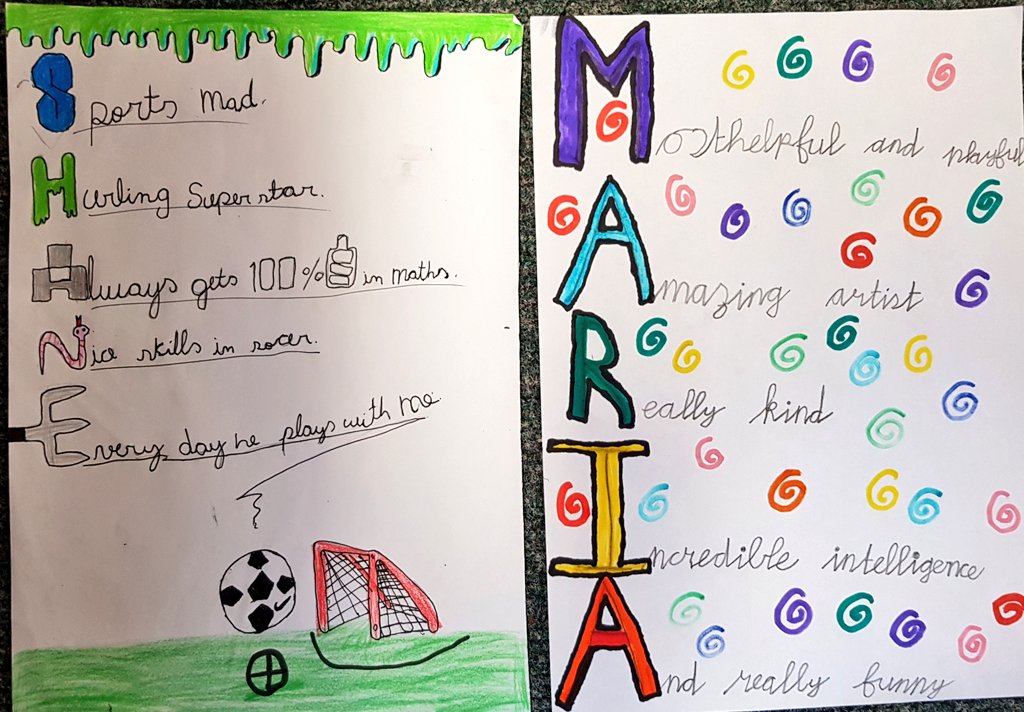 Sports mad.
Hurling Superstar.
Always gets 100% in maths.
Nice skills in socer.
Every day he plays with me.
Most helpful and playful
Amazing artist
Really kind
Incredible intelligence
And really funny